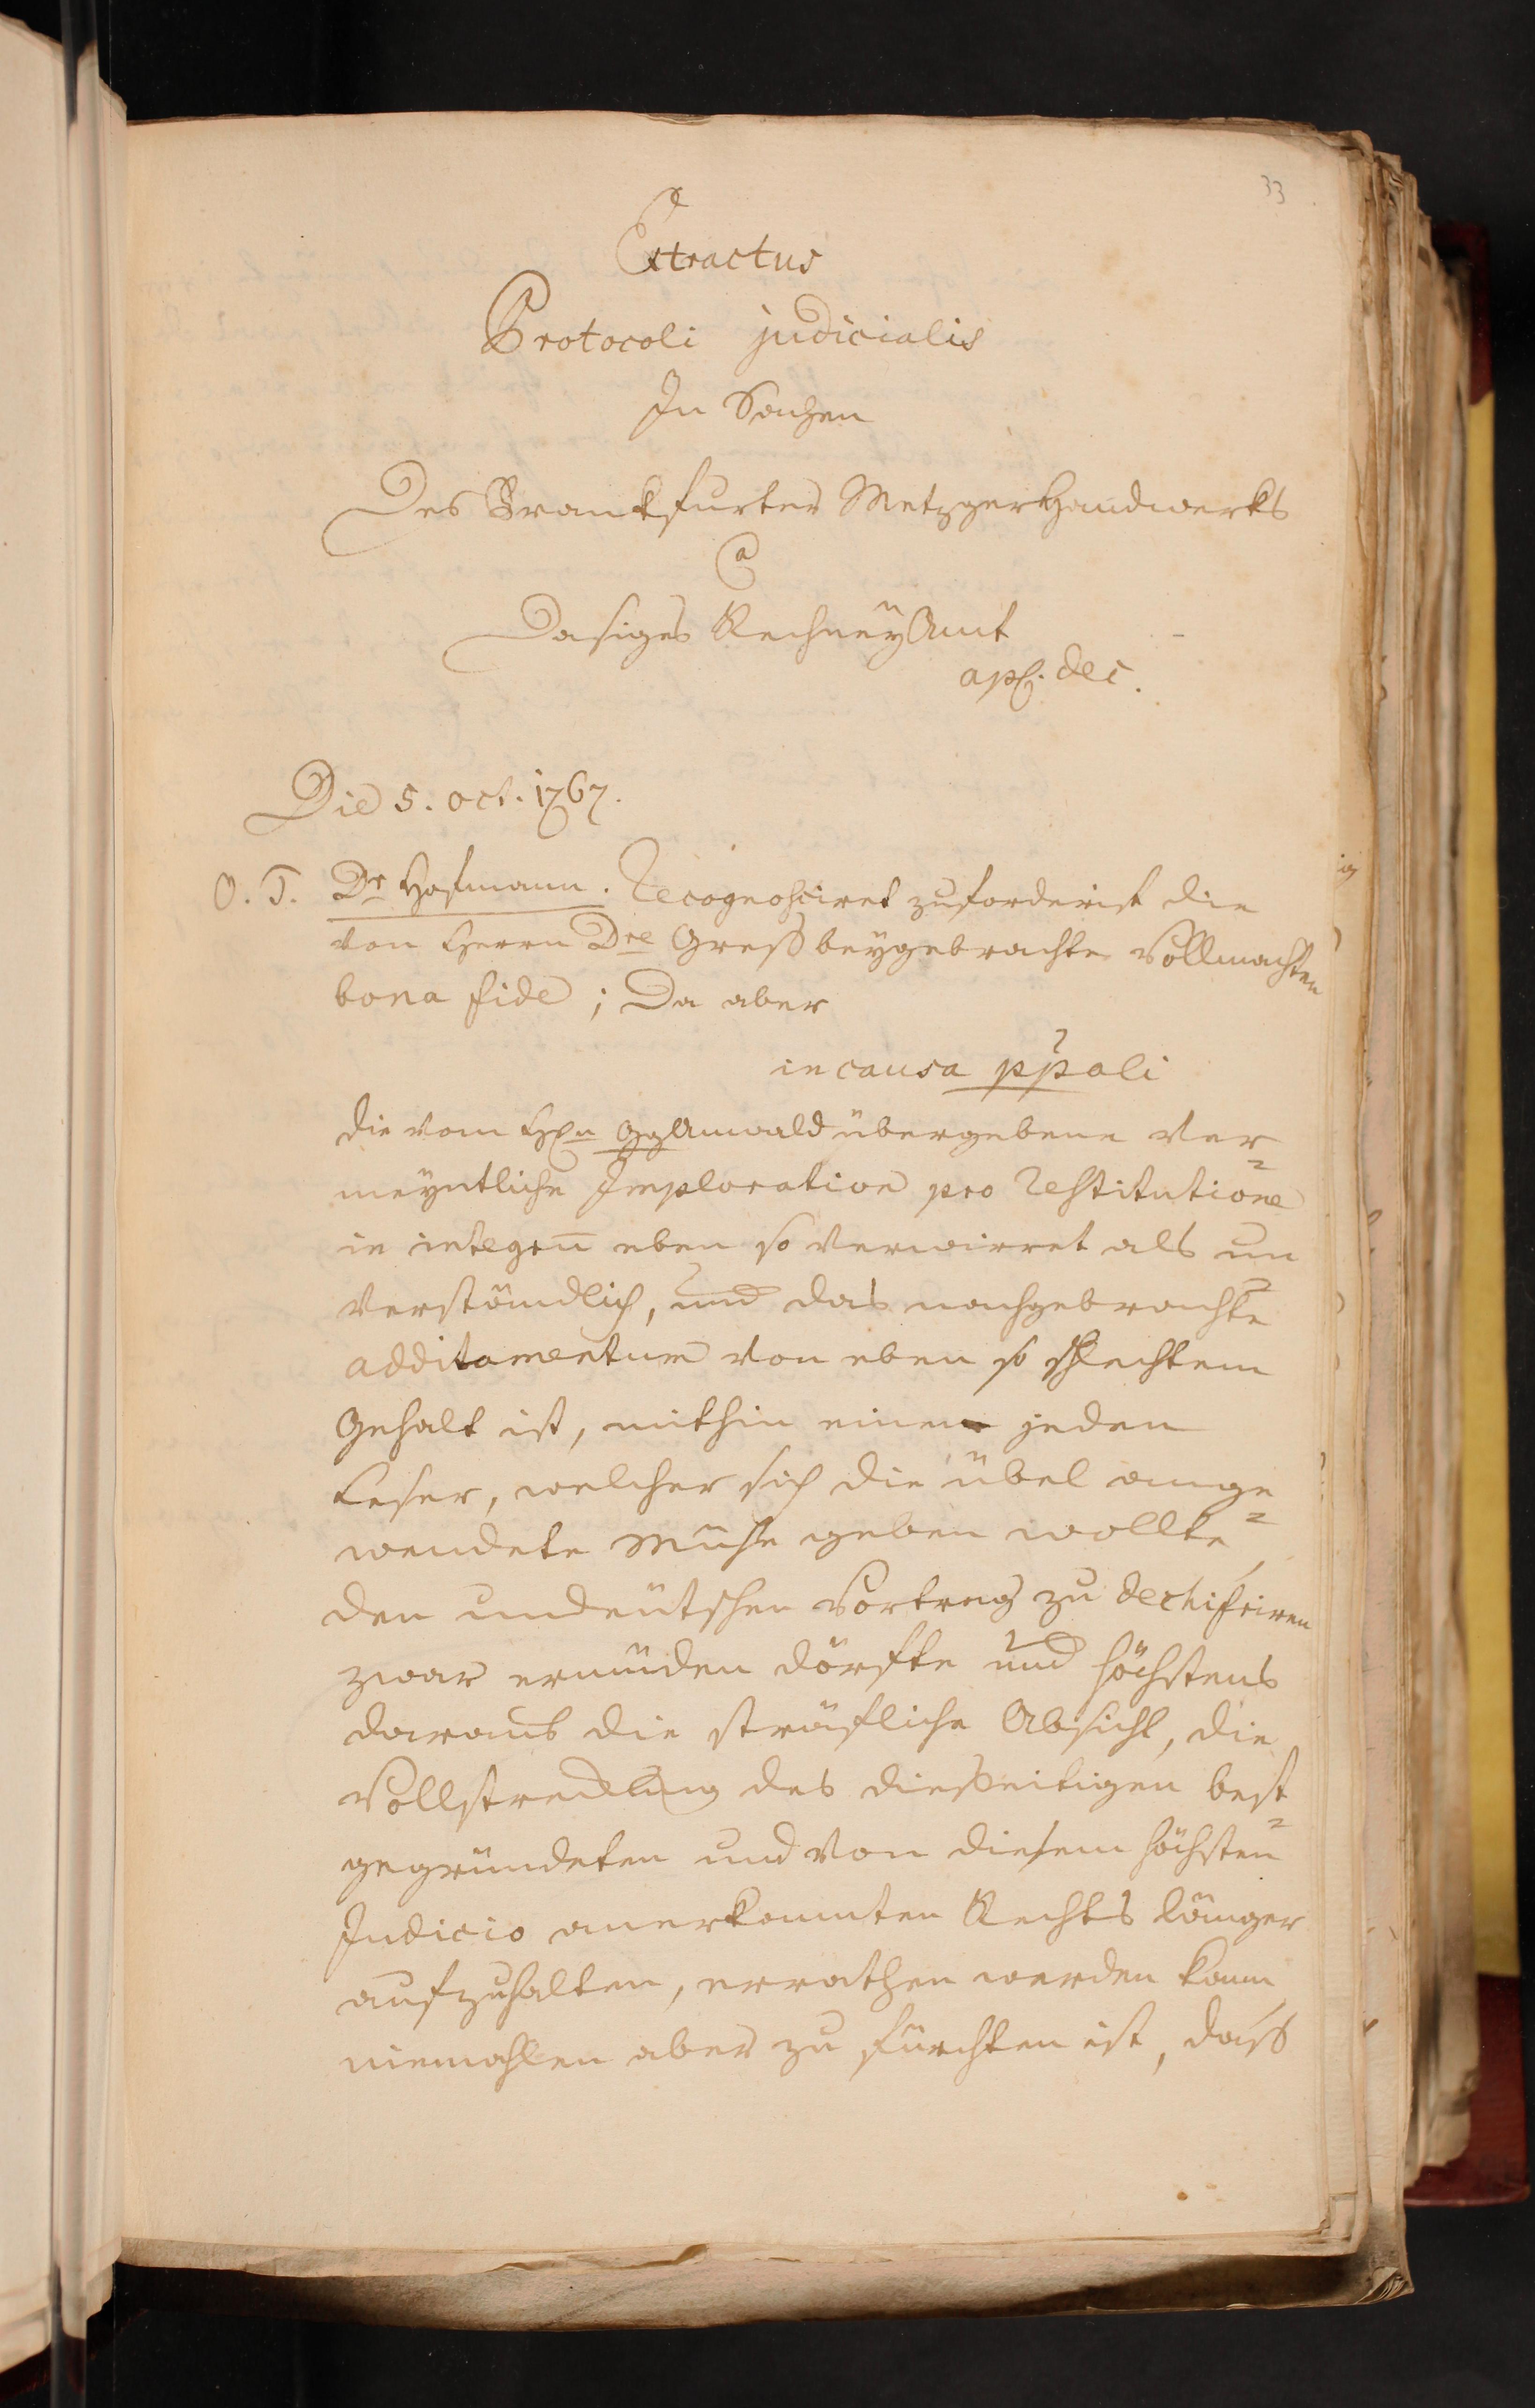 33
Extractus
Protocoli judicialis
In Sachen
Des Franckfurter Metzger Handwercks
Ca
Dasiges Rechney Amt
apl. dec.
Die 5. oct. 1767.
O. T. Dr. Hofmann. Recognosciret zuforderist die
von Herrn Dre Greß beygebrachte Vollmachten
bona fide; Da aber
in causa ppali
die vom Hrn GgAnwald übergebene ver=
meyntliche Imploration pro Restitutione
in integru̅ eben so verwirret als un=
verständlich, und das nachgebrachte
additamentum von eben so schlechtem
Gehalt ist, mithin einen jeden
Leser, welcher sich die übel ange=
wendete Mühe geben wollte,
den undeutschen Vortrag zu dechifriren
zwar ermüden dörfte und höchstens
daraus die sträfliche Absicht, die
Vollstreckung des diesseitigen best=
gegründeten und von diesem höchsten
Judicio anerkannten Rechts länger
aufzuhalten, errathen werden kann,
niemahlen aber zu fürchten ist, dass